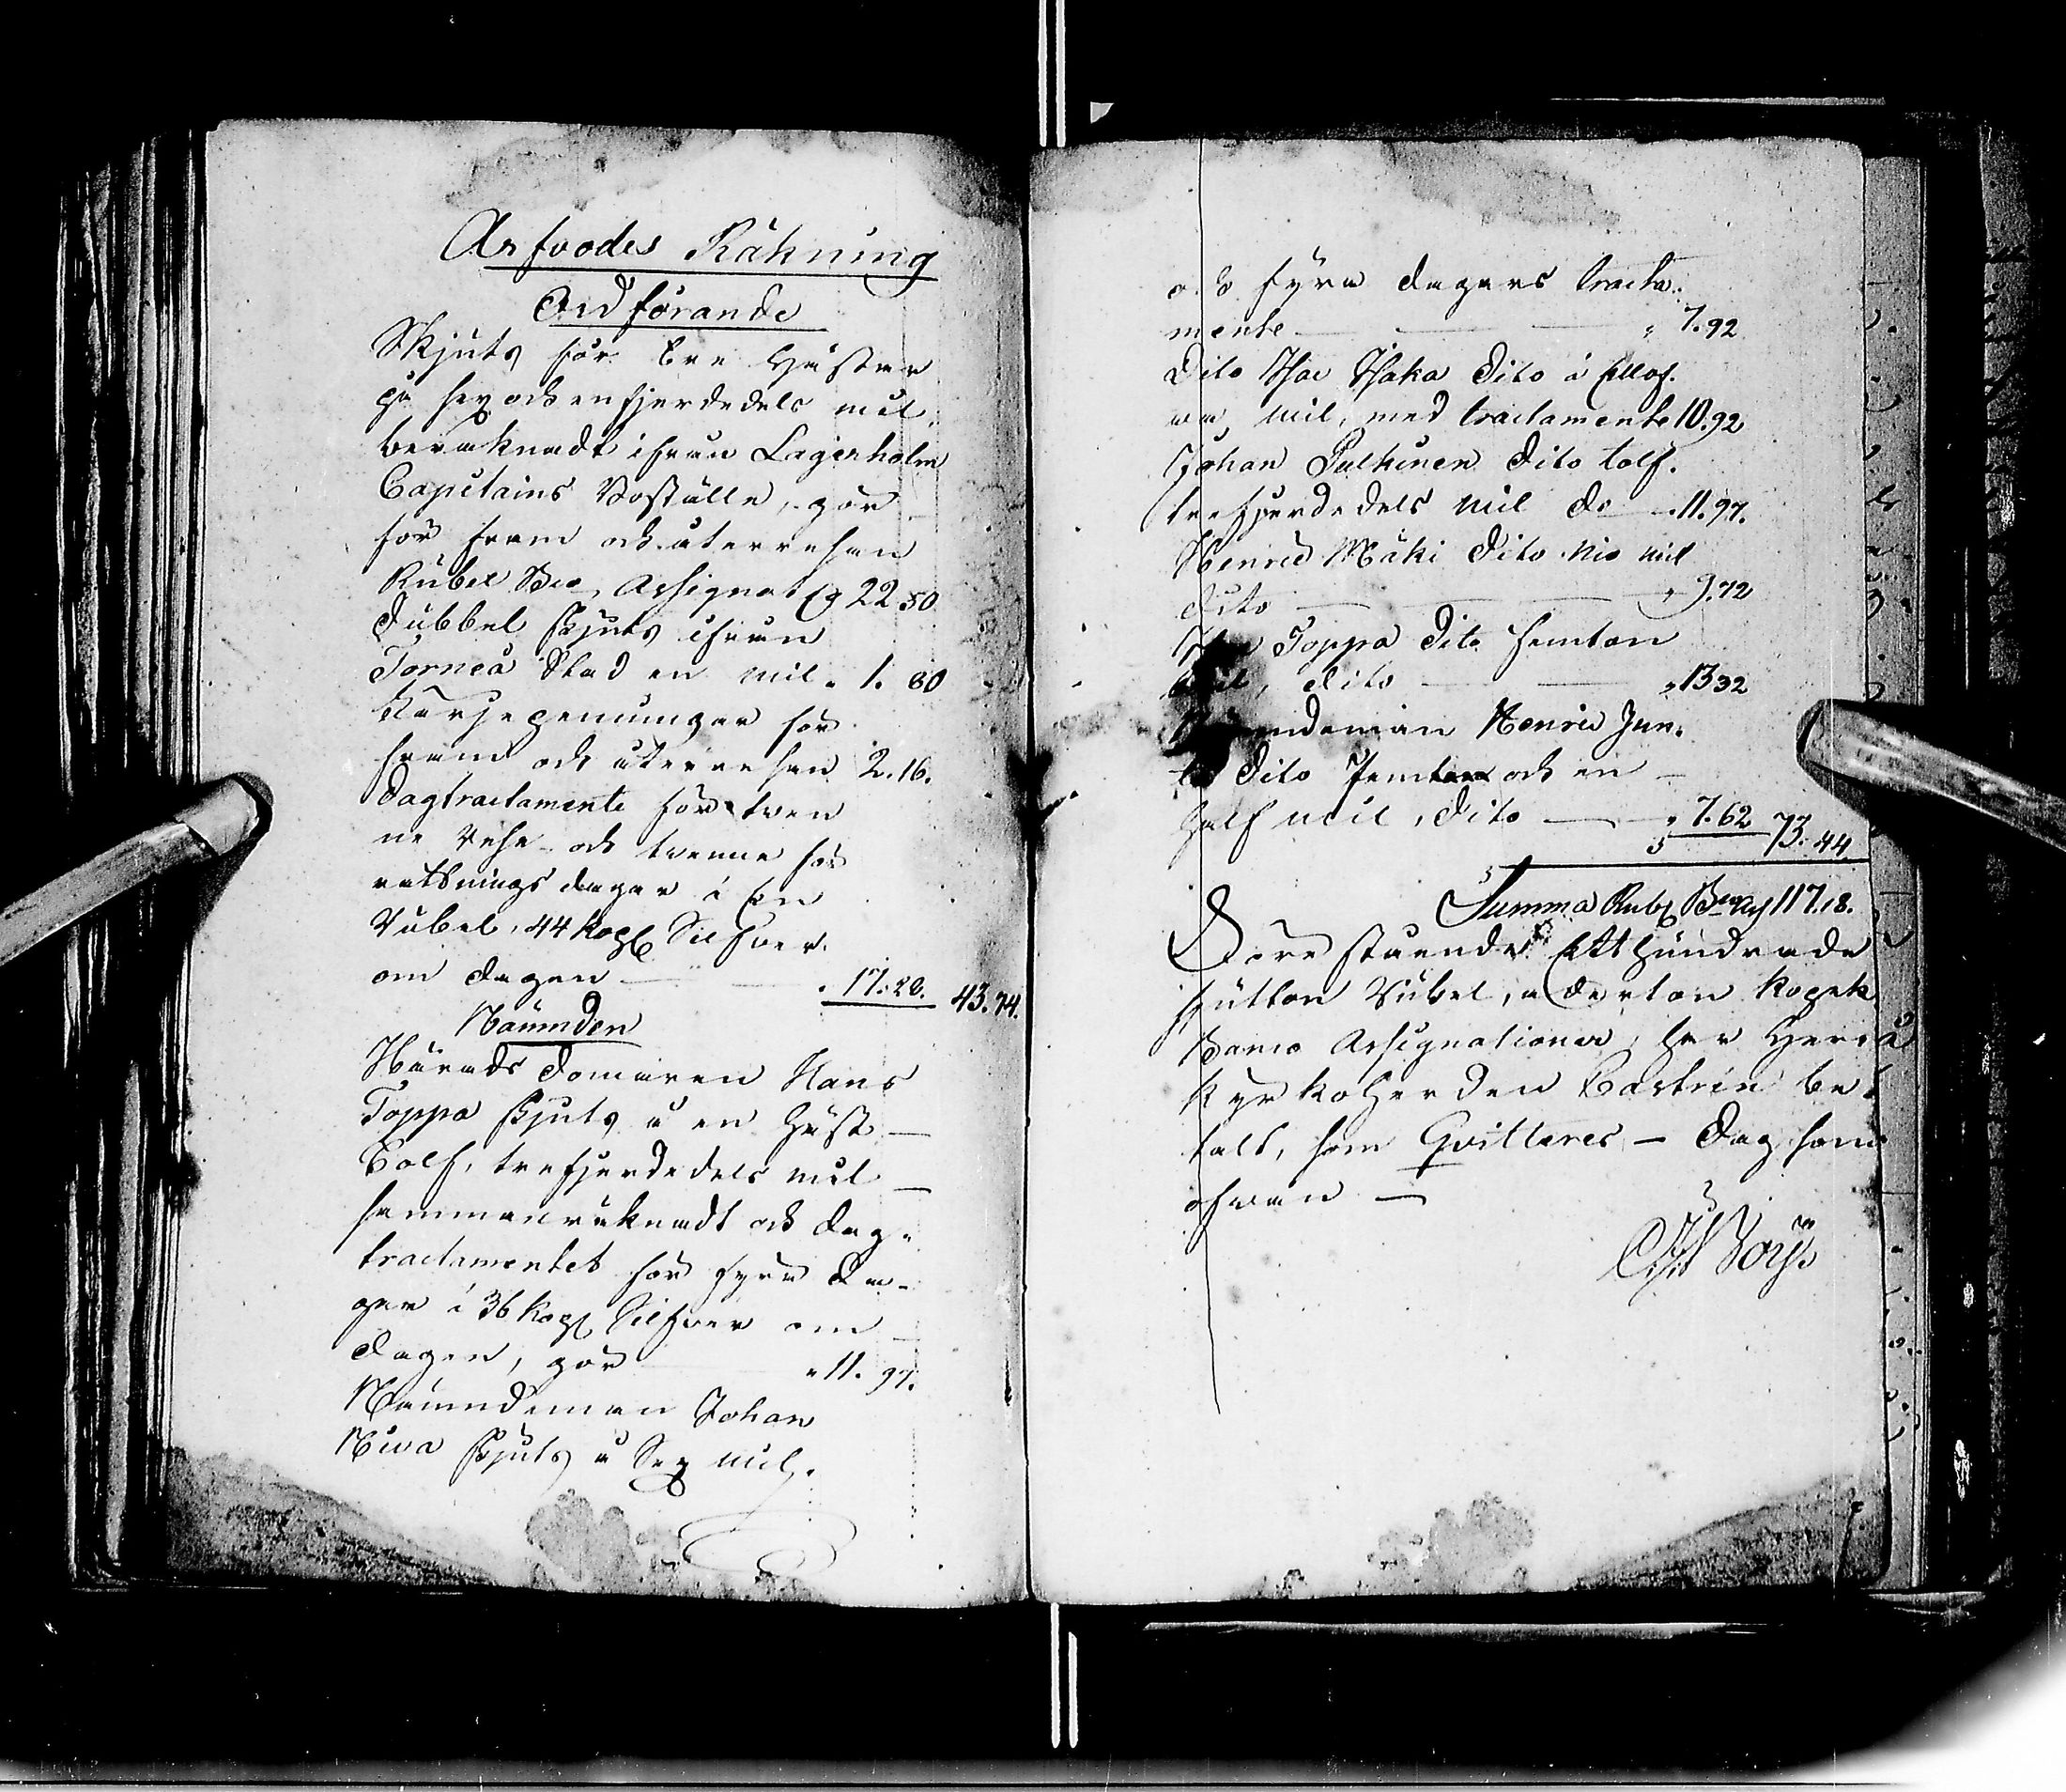 Arfvodes Räkning
Ordförande
Skjuts för tre Hästar
på sex och en fjerdedels mil,
beräknadt ifrån Lagerholm
Capitains Boställe, gör
för fram och återresan
Rubel Bco Assignat 22.50
Dubbel skjuts ifrån
Torneå Stad en mil " 1. 80
Kärrjepenningar för
fram och återresan 2.16.
Dagtractamente för tven
ne rese- och tvenne för
rättnings dagar á En
Rubel, 44 kop Silfver
om dagen " 17.28. 43.74.
Nämnden
Härads Domaren Hans
Toppa skjuts á en häst
Tolf, trefjerdedels mil
sammanräknadt och dag-
tractamentet för fyra da-
gar á 36 kop Silfver om
dagen, gör " 11. 97.
Nämndeman Johan
Niva skjuts á Sex mil.
och fyra dagars tracta-
mente " 7.92
Dito Isac Haka Dito á Ellof-
va mil, med tractamente 10.92
Johan Pulkinen Dito tolf.
trefjerdedels mil do " 11.97.
Henric Mäki Dito Nio mil
dito " 9.72
Toppa Dito femton
mil, dito " 13 32
Nämndeman Henric Jun-
ti Dito Fem och en
half mil, dito " 7.62 73.44
Summa Rub Bco As 117.18.
Förestående Etthundrade
sjutton Rubel, aderton kopek
Banco Assignationer, har Herr
Kyrkoherden Castrén be-
talt, som Qvitteres – Dag som
ofvan –